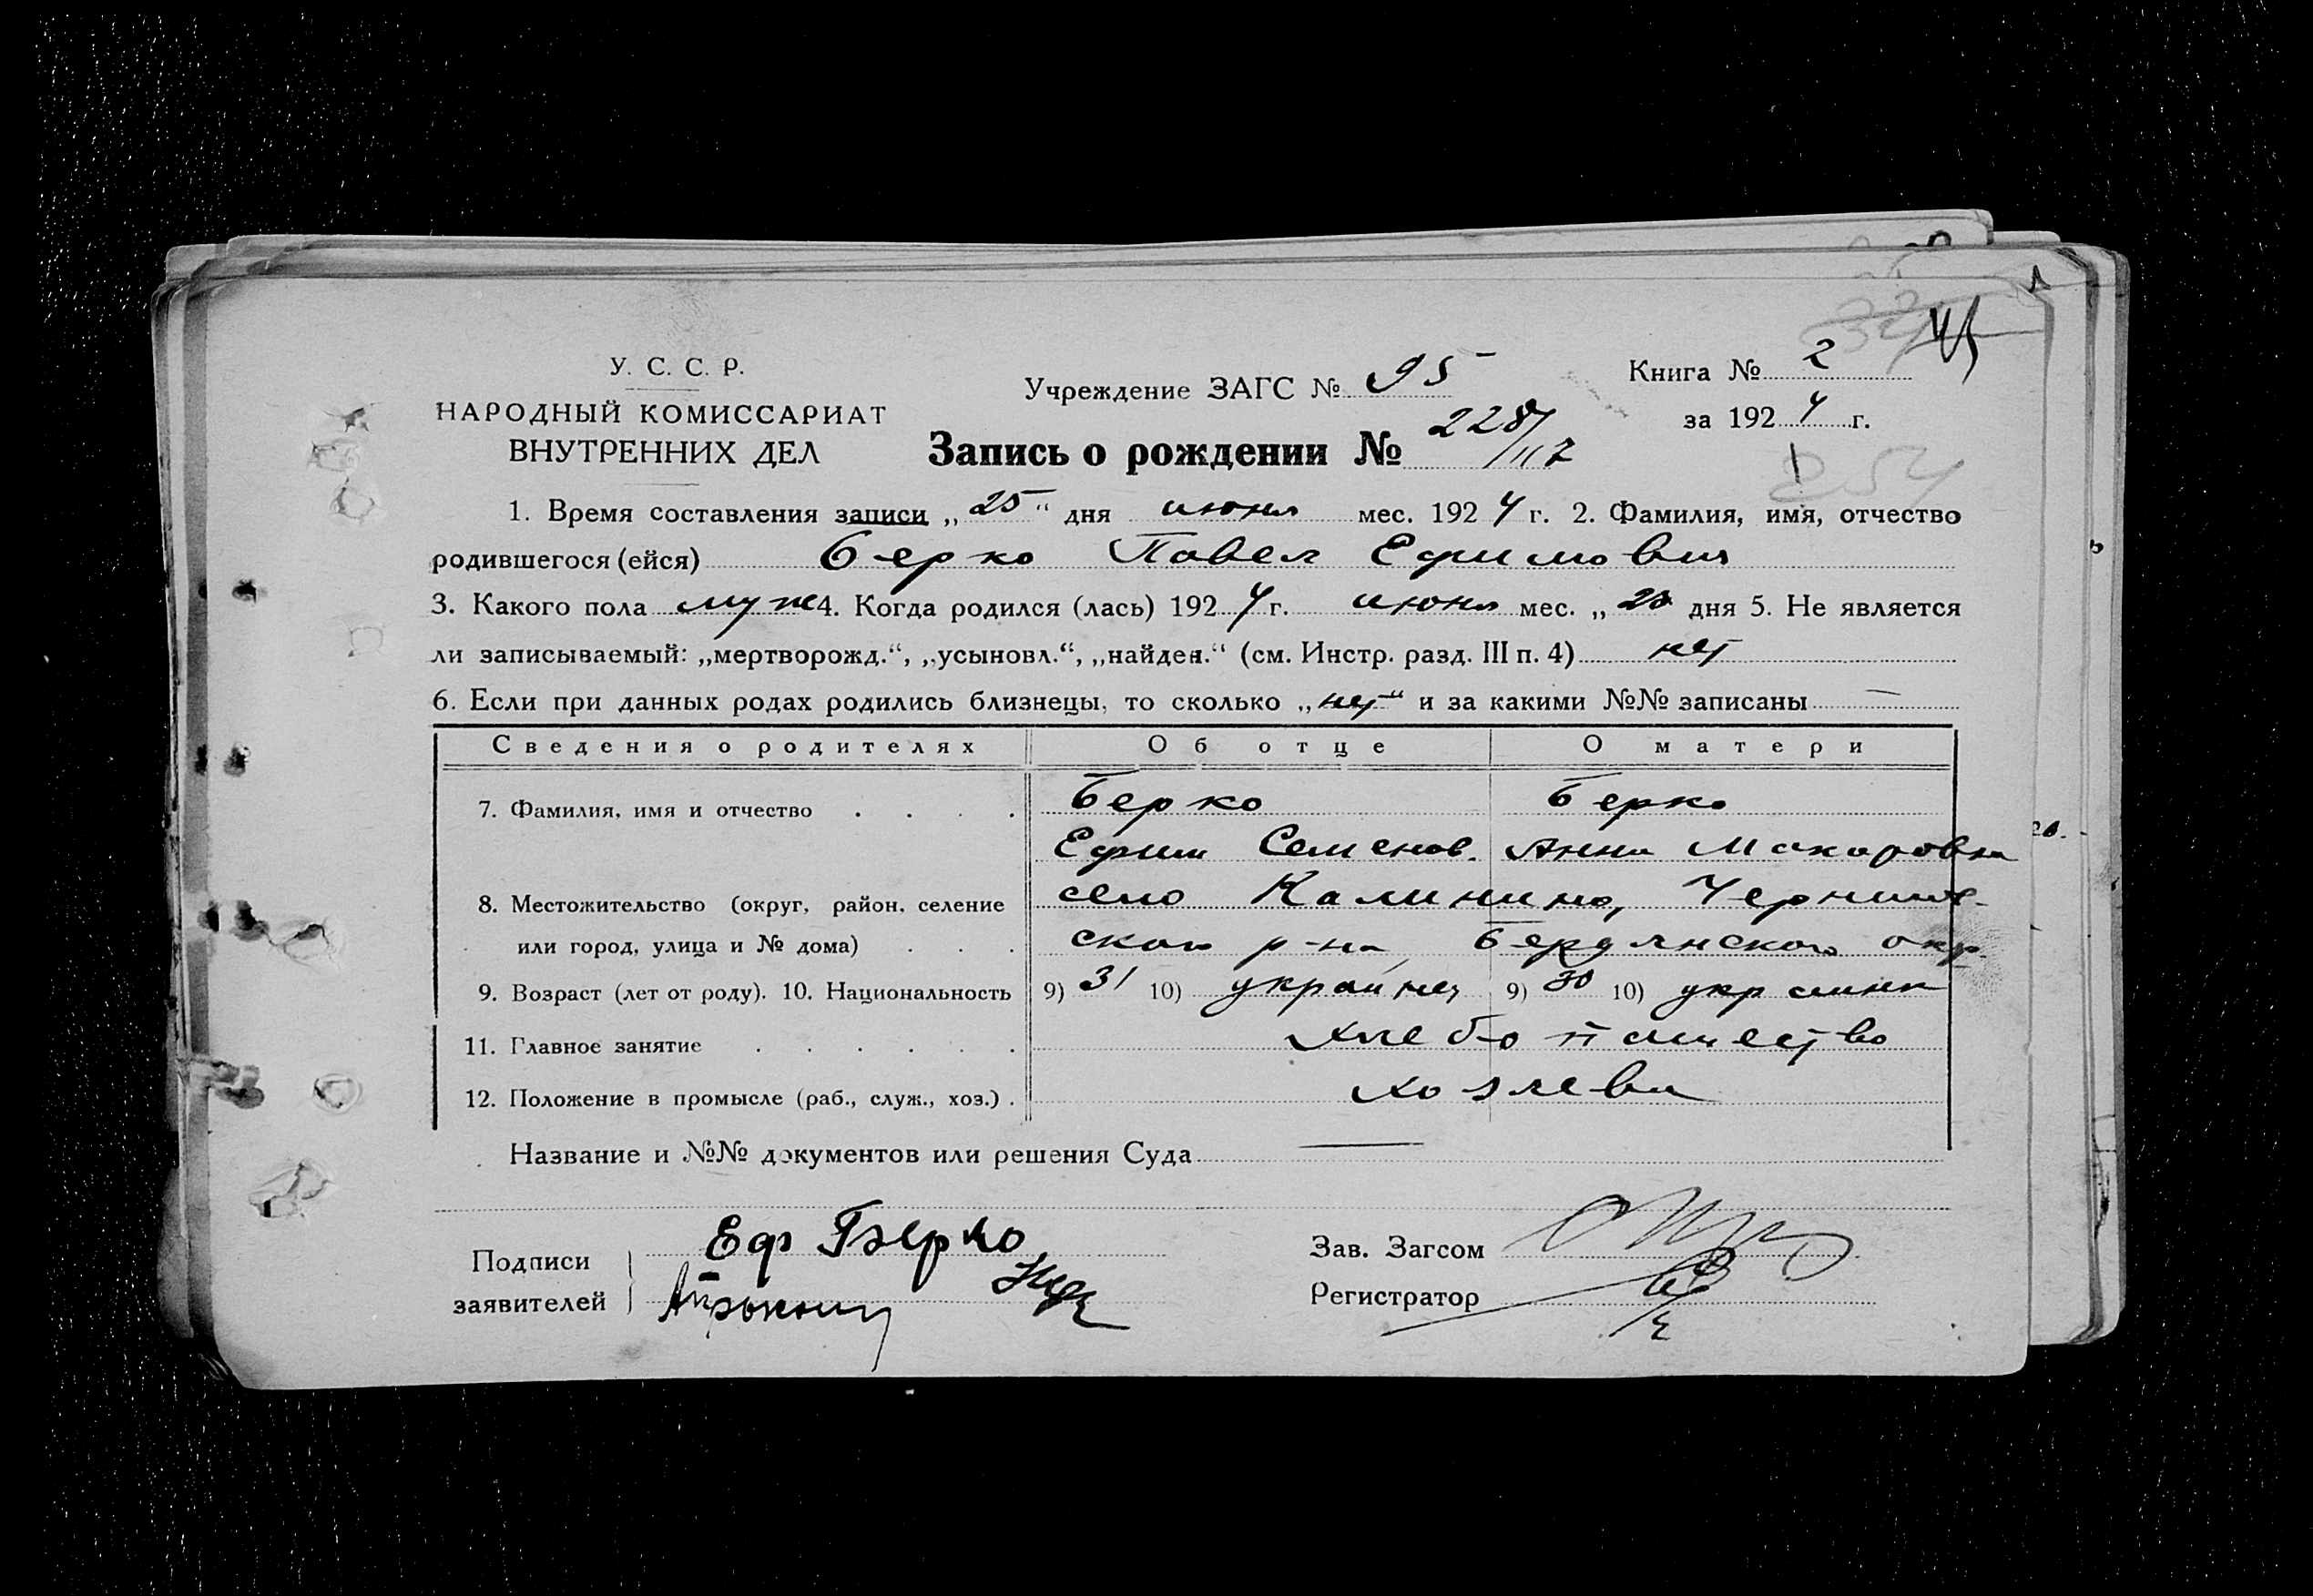 У. С. С. Р.
НАРОДНЫЙ КОМИССАРИАТ
ВНУТРЕННИХ ДЕЛ
Учреждение ЗАГС № 95
Книга № 2
за 1924 г.
Запись о рождении № 228/117
254
1. Время составления записи „25“ дня июня мес. 1924 г. 2. Фамилия, имя, отчество
родившегося (ейся) Берко Павел Ефимович
3. Какого пола муж 4. Когда родился (лась) 1924 г. июня мес. „ дня 5. Не является
ли записываемый: „мертворожд.“, „усыновл.“, „найден.“ (см. Инстр. разд. III п. 4) нет
6. Если при данных родах родились близнецы, то сколько „нет“ и за какими №№ записаны —
Сведения о родителях Об отце О матери
7. Фамилия, имя и отчество . . . . Берко Берко
Ефим Семенов. Анна Макаровна
8. Местожительство (округ, район, селение село Калинино,
или город, улица и № дома) . . . ского р-на, Бердянского окр.
9. Возраст (лет от роду). 10. Национальность 9) 31 10) украинец 9) 30 10) украинк
11. Главное занятие . . . . . . хлебопашество
12. Положение в промысле (раб., служ., хоз.) . хозяева
Название и №№ документов или решения Суда —
Подписи
заявителей
Еф Берко
Зав. Загсом
Регистратор